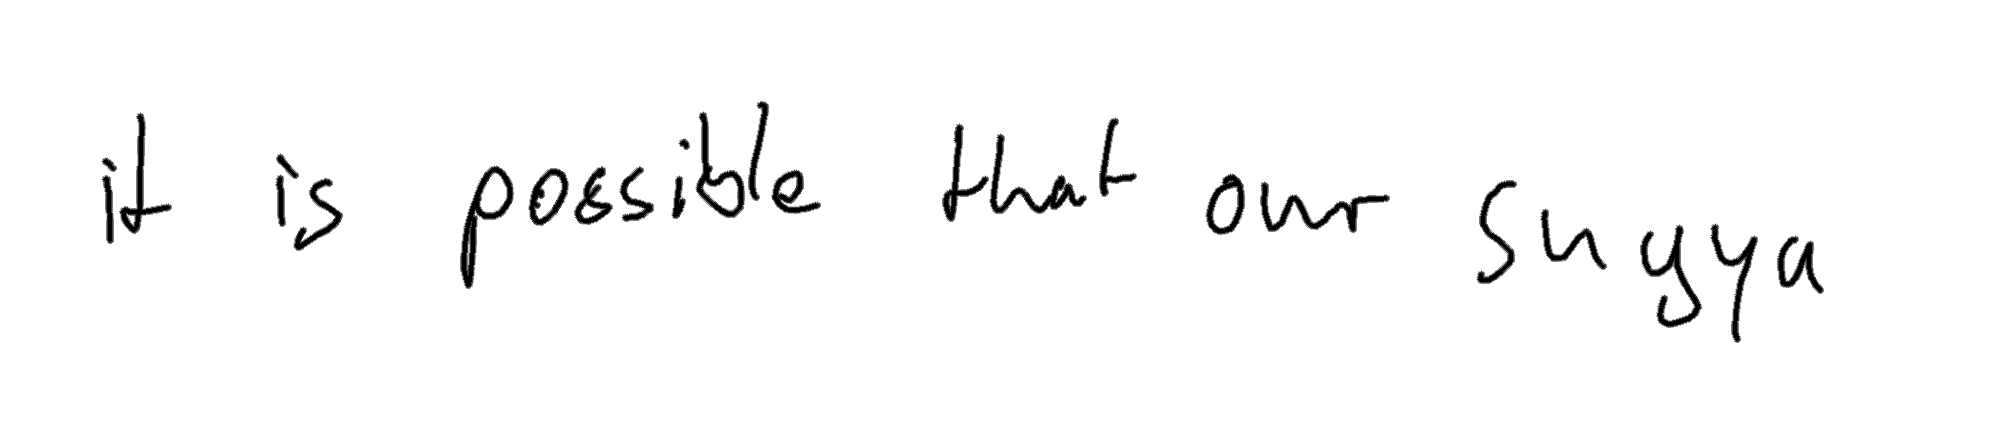 it is possible that our sugya